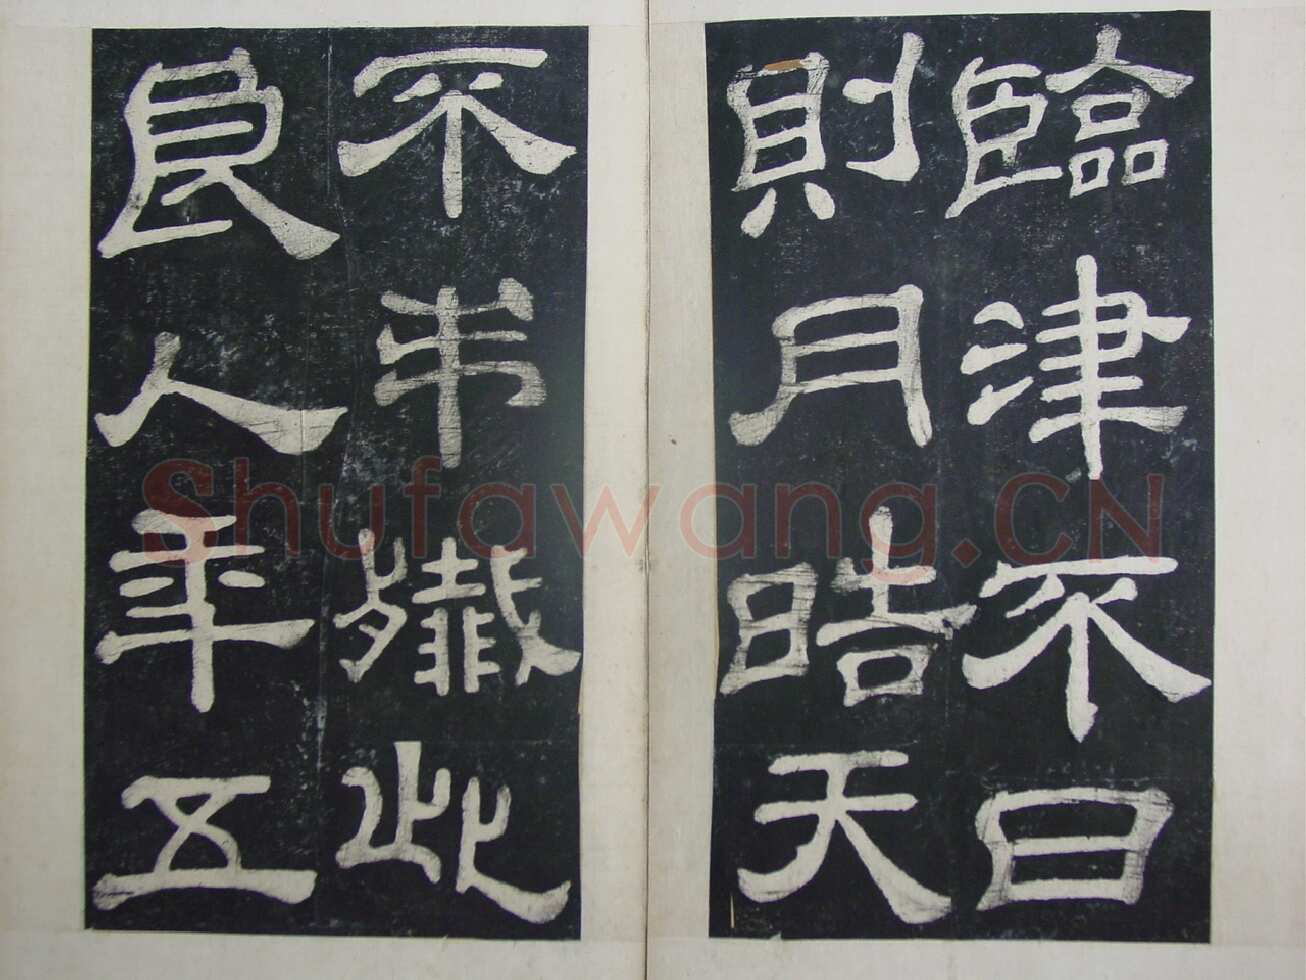 臨津不日
則月晧天
不弔殲此
良人年五
Shufawang.CN